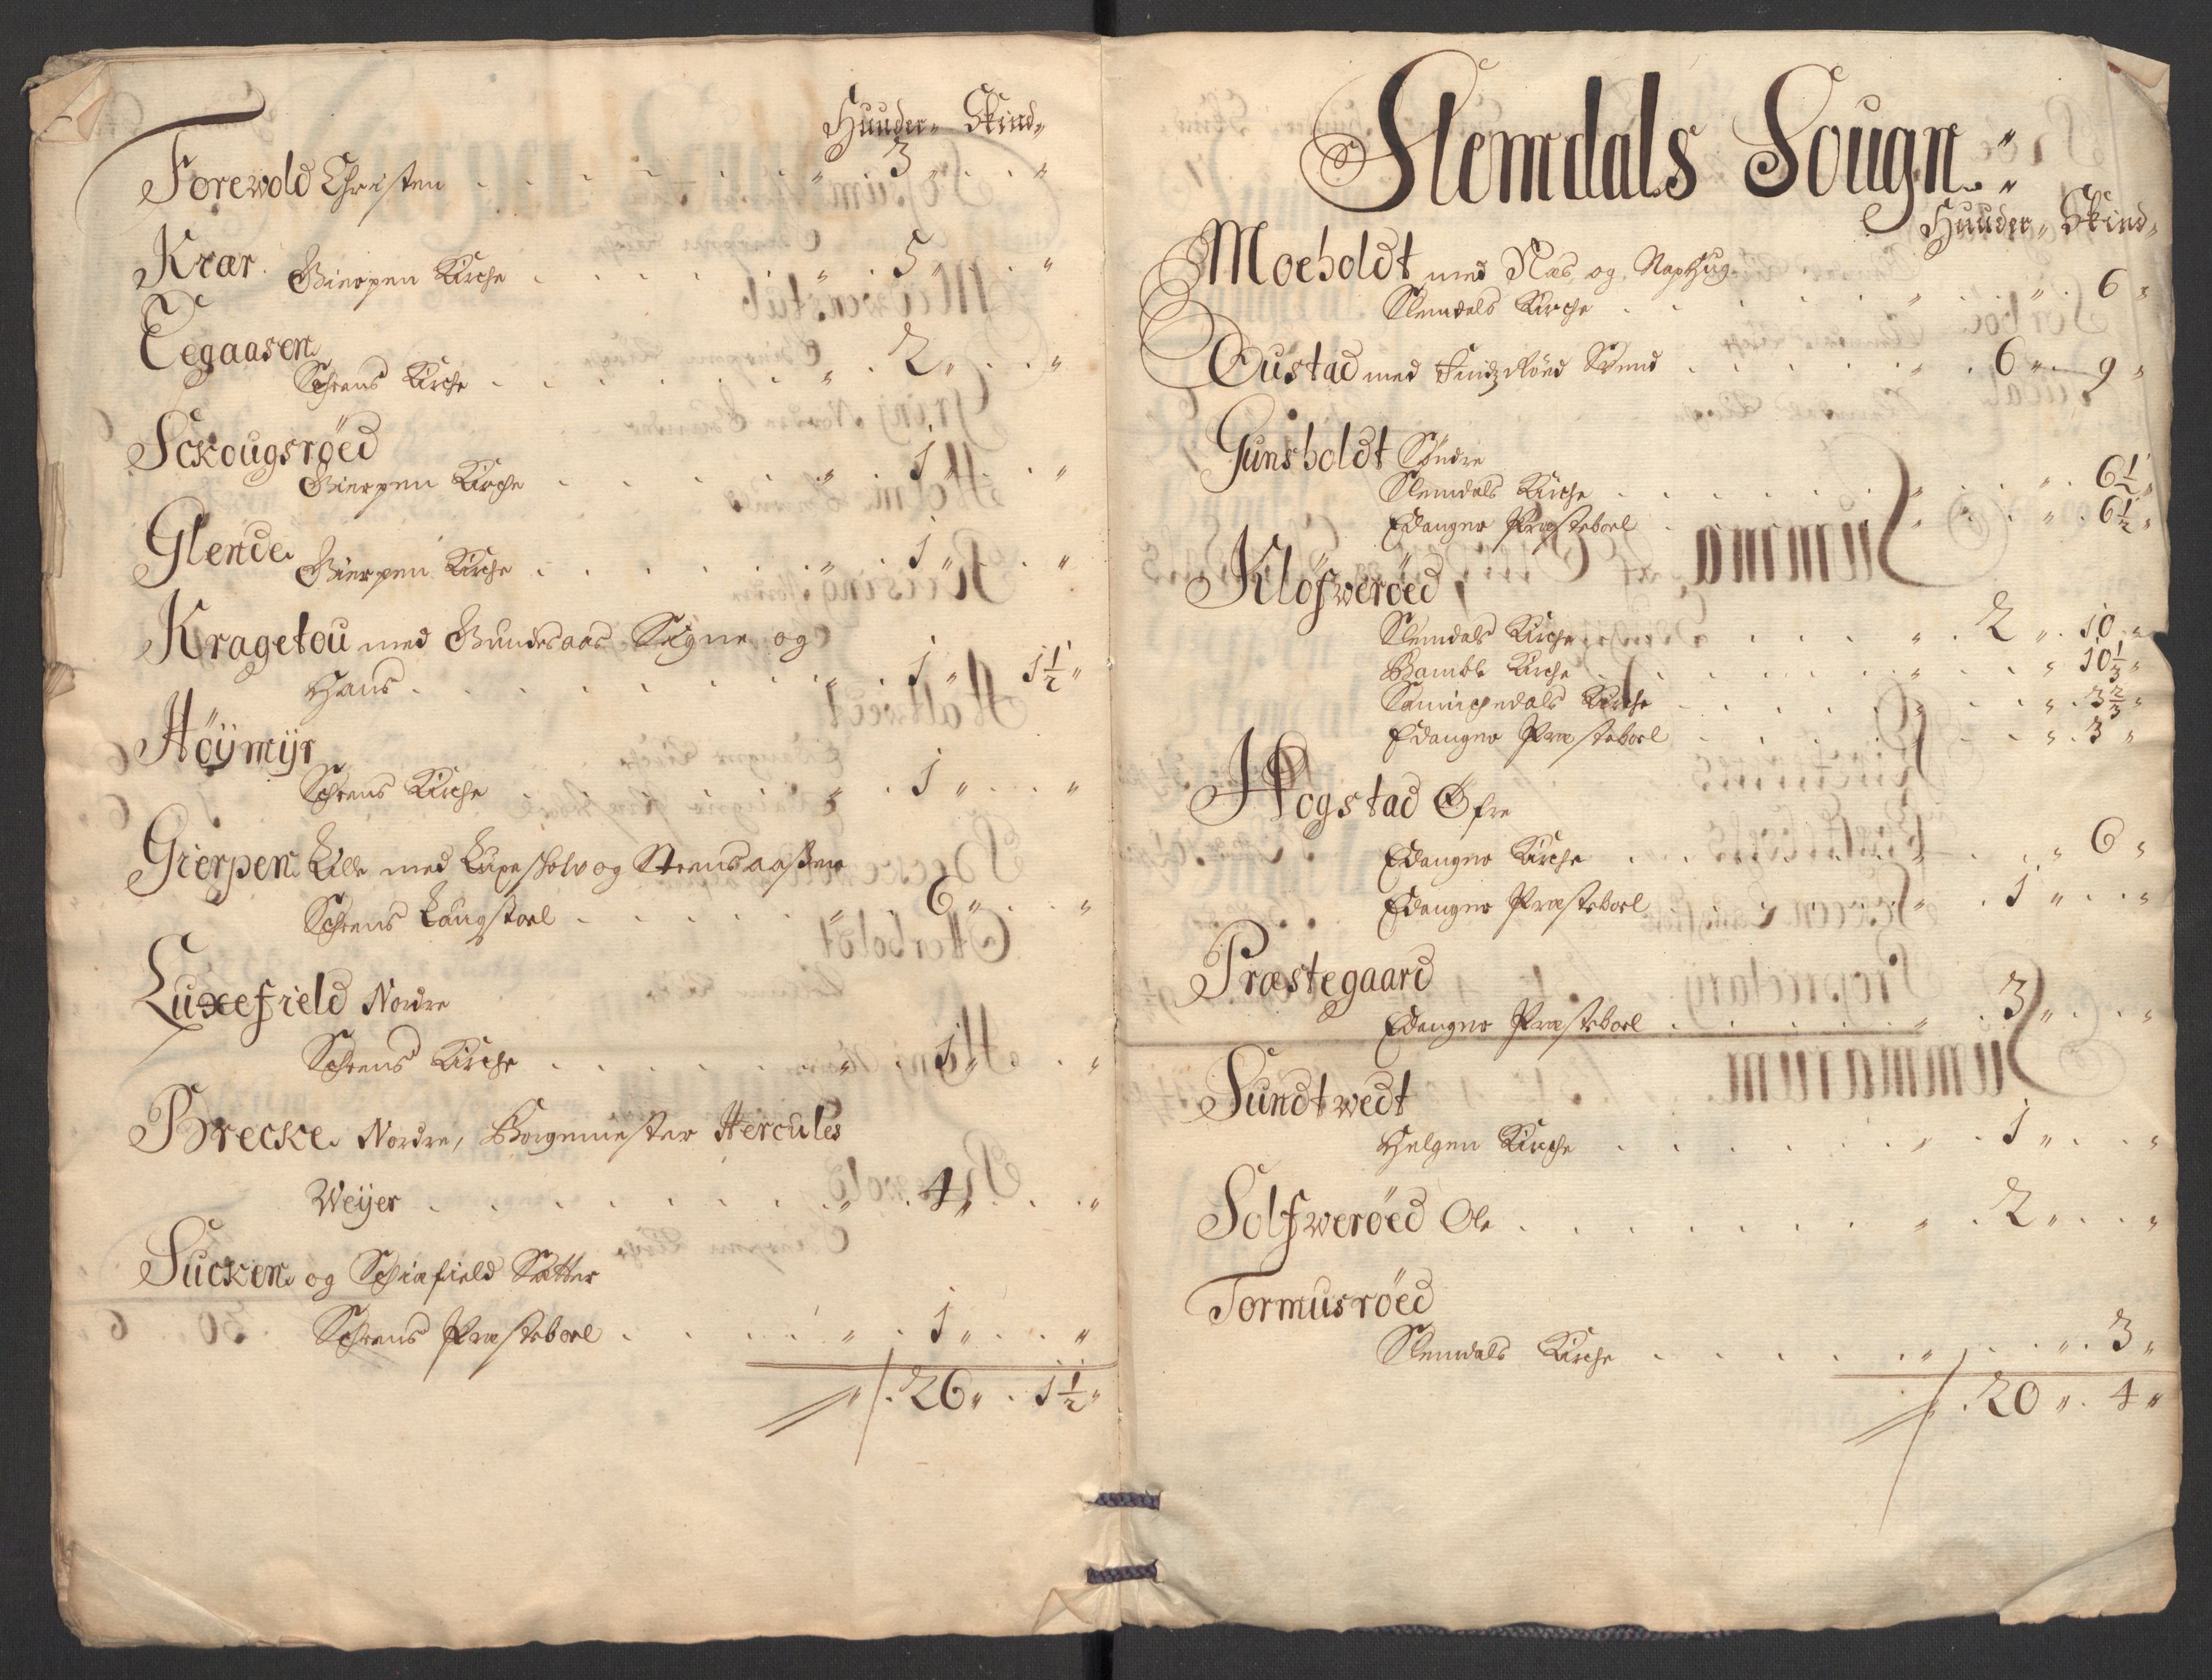 Huuder„ Skind„
Forewold Christen . . . . . . „ . 3 „ . . „
Krær Gierpen Kirche . . . . . „ . 5 „ . . „
Tegaasen
Schiens Kirche . . . . . . „ . 2 „ . . „
Sckougsrøed
Gierpen Kirche . . . . . „ . 1 „ . . „
Glende Gierpen Kirche . . . . . „ . 1 „ . . „
Kragetou med Gundesaas Signe og
Hans . . . . . . . . „ . 1 „ 1½ „
Høÿmÿr
Schiens Kirche . . . . . . „ . 1 „ . . „
Gierpen Lille med og
Schiens Laugstoel . . . . . „ . 6 „ . . „
Luxefield Nordre
Schiens Kirche . . . . . . „ . 1 „ . . „
Brecke Nordre, Borgemester Hercules
Weÿer . . . . . . . . „ . 4 „ . . „
Sucken og Schiefield Sætter
Schiens Præsteboel . . . . „ . 1 „ . . „
„ . 26 „ . 1½ „
Slemdals Sougn :
Huuder„ Skind„
Moeholdt med Næs og Naphug
Slemdals Kirche . . . . . „ . . „ . 6 „
Oustad med Findzrøed Svend . . . . . „ . 6 „ . 9 „
Gunsholdt Søndre
Slemdals Kirche . . . . . . „ . . „ . 6½ „
Edanger Præsteboel . . . . . „ . . „ . 6½ „
Kløfwerøed
Slemdals Kirche . . . . . „ . 2 „ . 10 „
Bamble Kirche . . . . . . „ . . „ 10⅓ „
Sannichedals Kirche . . . . . „ . . „ . 3⅔ „
Edanger Præsteboel . . . . . „ . . „ . 3 „
Hogstad Øfre
Edanger Kirche . . . . . . „ . . „ 6 „
Edanger Præsteboel . . . . . „ . 1 „ . . „
Præstegaard
Edanger Præsteboel . . . . . „ . 3 „ . . „
Sundtwedt
Helgen Kirche . . . . . . „ . 1 „ . . „
Solfwerøed Ole . . . . . . . „ . 2 „ . . „
Tormusrøed
Slemdals Kirche . . . . . „ . . „ . 3 „
„ . 20 „ . 4 „